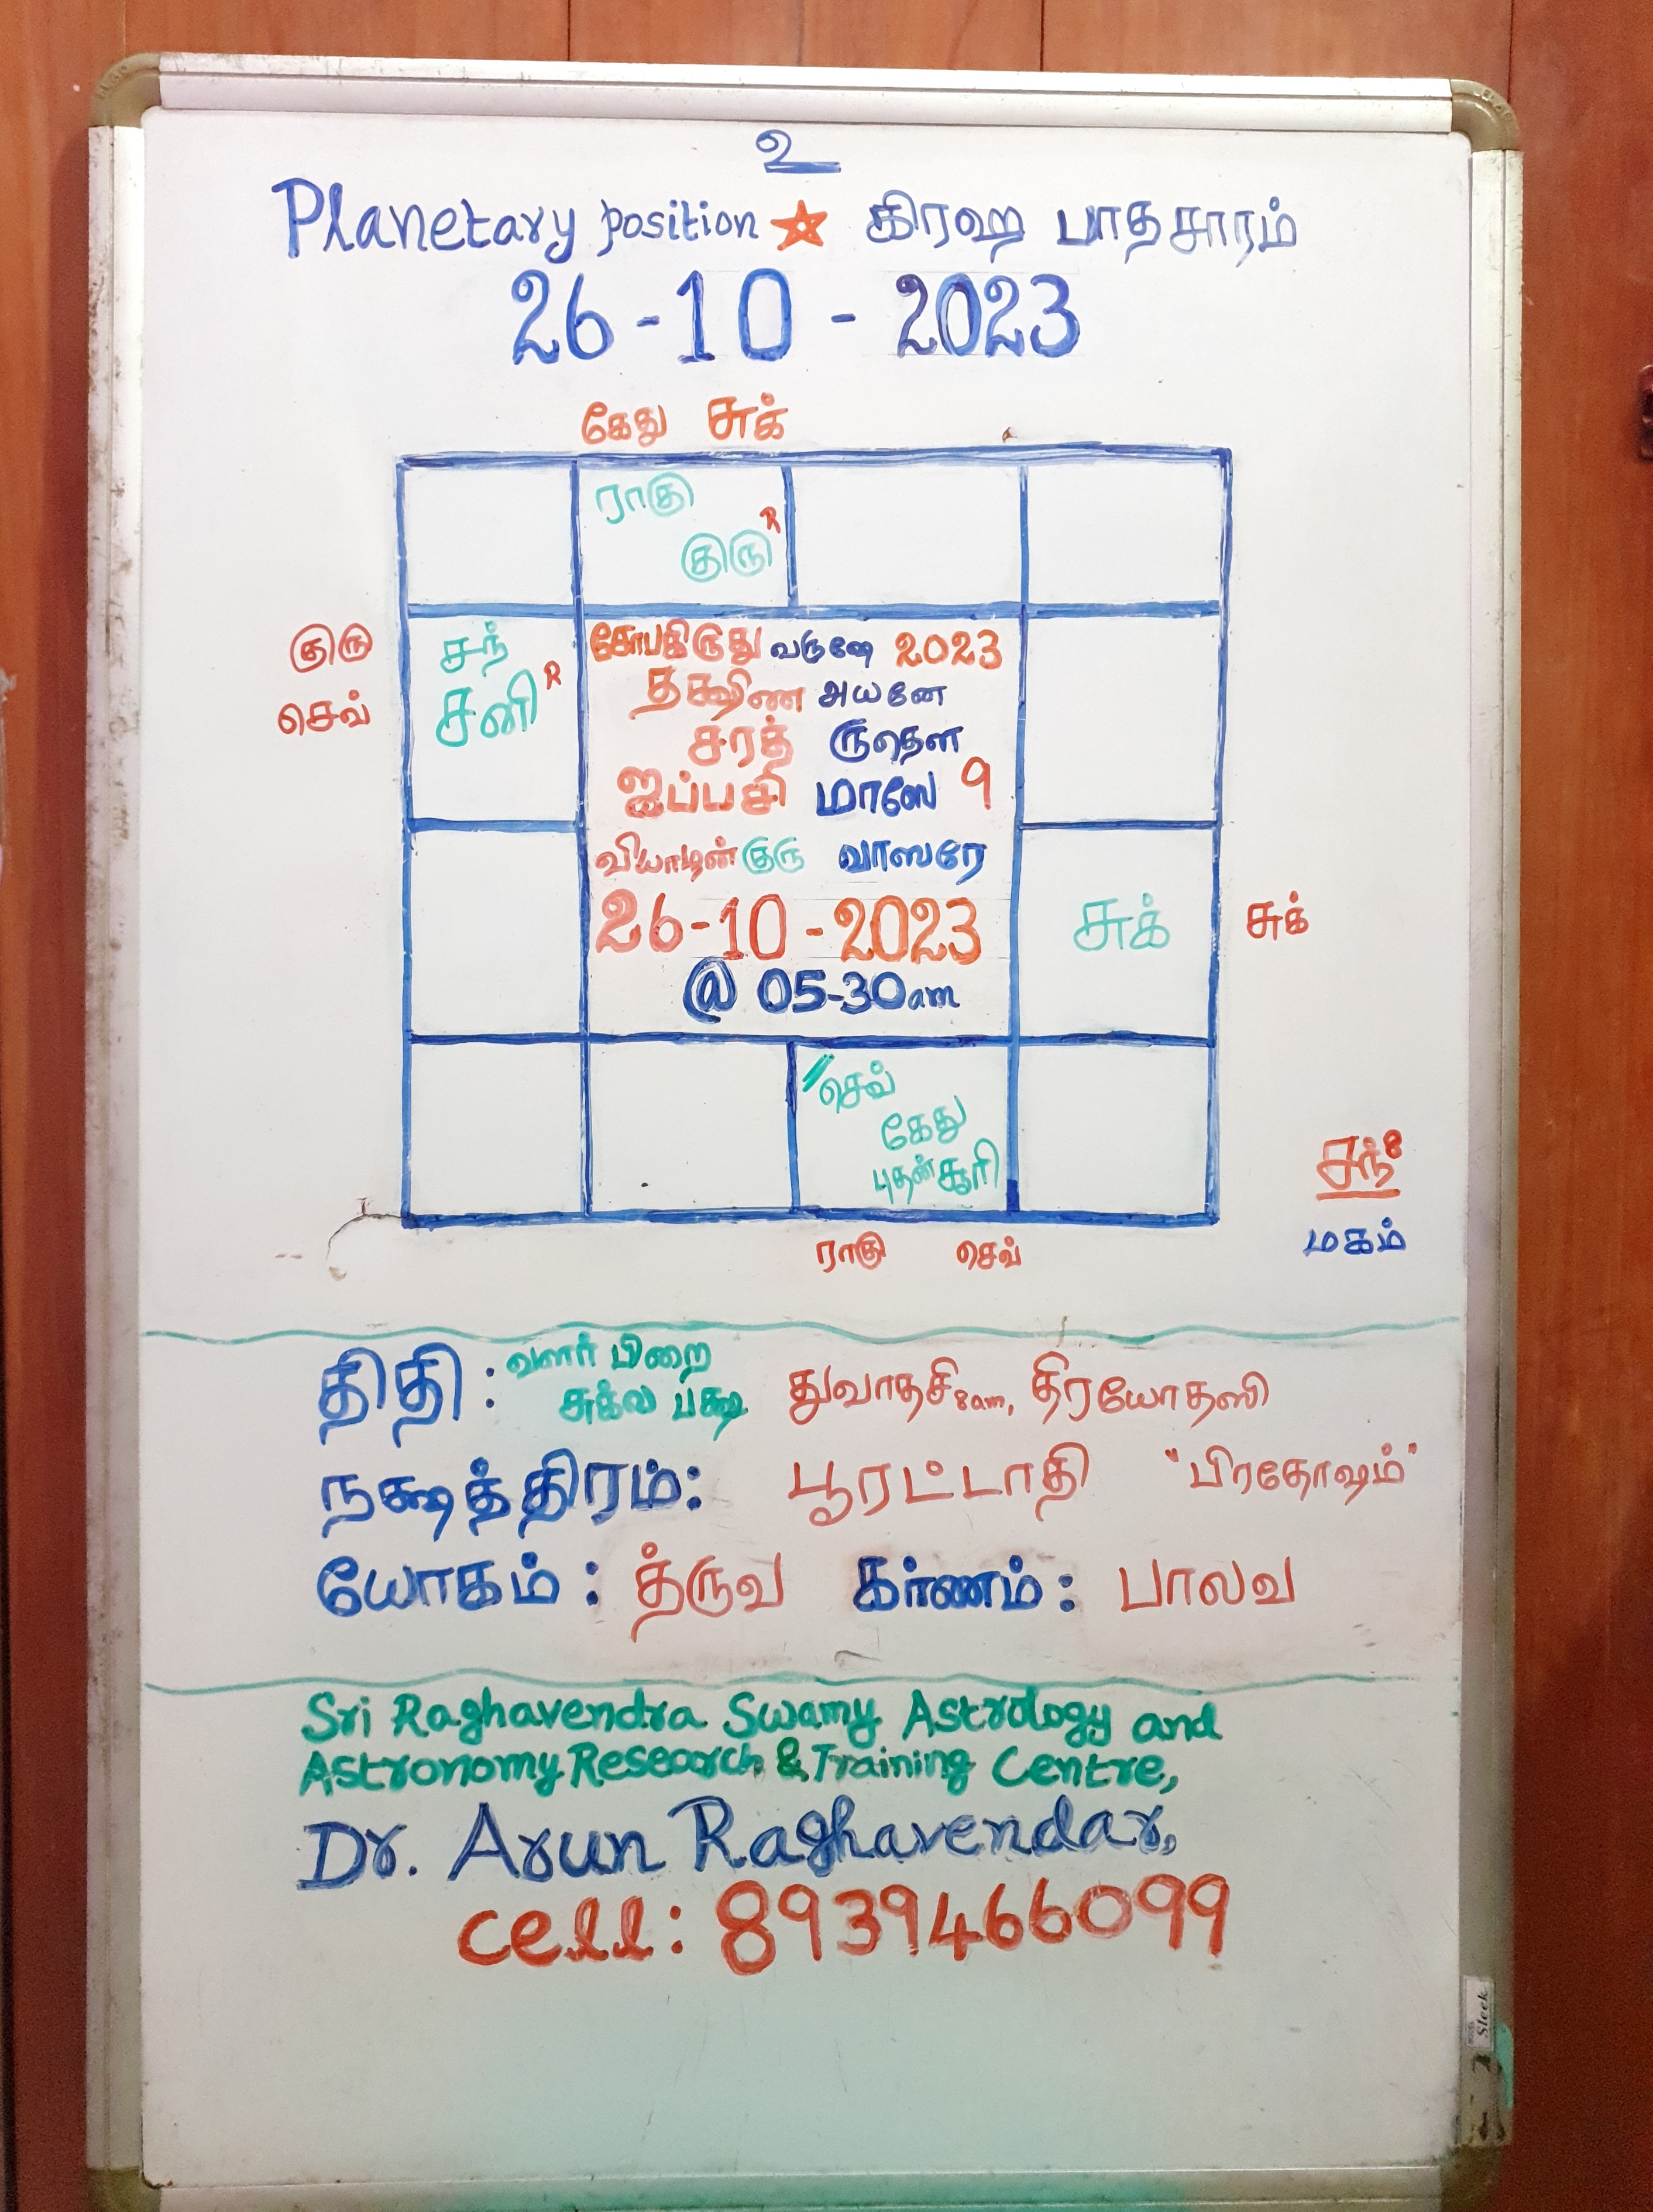 உ
Planetary position ☆ கிரஹ பாதசாரம்
26-10-2023
கேது சுக்
ராகு
குரு R
குரு
செவ்
சந்
சனி R
கோபகிருது வருஷே 2023
தக்ஷிண அயனே
சரத் ருதௌ
ஐப்பசி மாஸே 9
வியாழன் குரு வாஸரே
26-10-2023
@ 05-30am
சுக்
சுக்
செவ்
கேது
புதன் சூரி
ராகு செவ்
சந்
மகம்
திதி : வளர் பிறை
சுக்ல பக்ஷ துவாதசி 8am, திரயோதஸி
நக்ஷத்திரம்: பூரட்டாதி "பிரதோஷம்"
யோகம் : த்ருவ கர்ணம் : பாலவ
Sri Raghavendra Swamy Astrology and
Astronomy Research & Training Centre,
Dr. Arun Raghavendar,
cell: 8939466099
Sleek